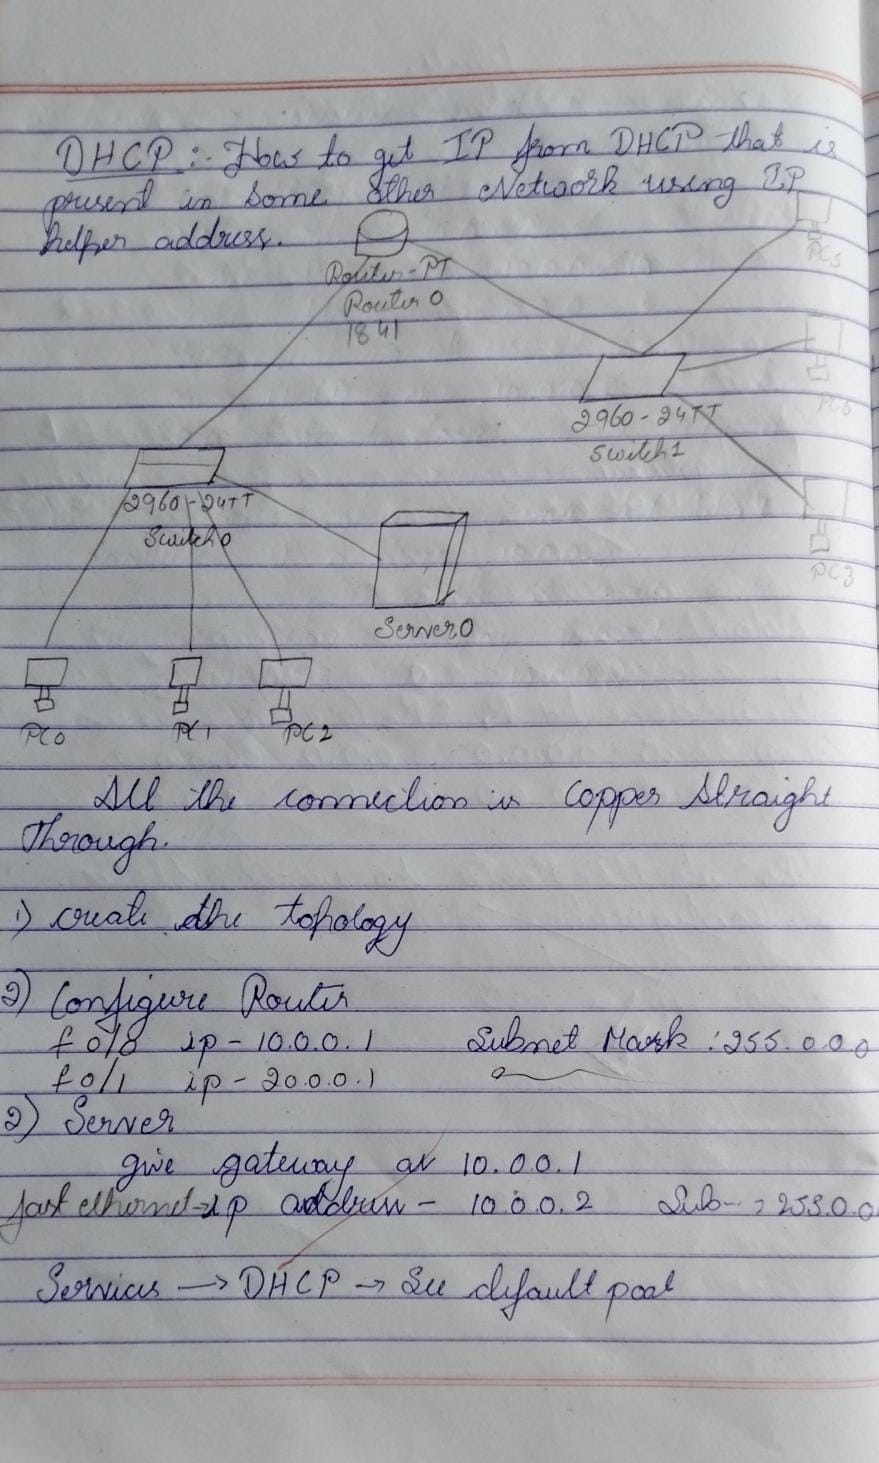 DHCP :- How to get IP from DHCP that is
present in some other Network using IP
helper address.
PC5
Router-PT
Router0
1841
PC6
2960-24TT
Switch1
2960-24TT
Switch0
PC3
Server0
PC0
PC1
PC2
All the connection is Copper Straight
Through.
1) create the topology
2) Configure Router
f 0/0 ip - 10.0.0.1 Subnet Mask : 255.0.0.0
f 0/1 ip - 20.0.0.1
2) Server
give gateway as 10.0.0.1
fast ethernet → ip address - 10.0.0.2 Sub- : 255.0.0
Services → DHCP → See default pool